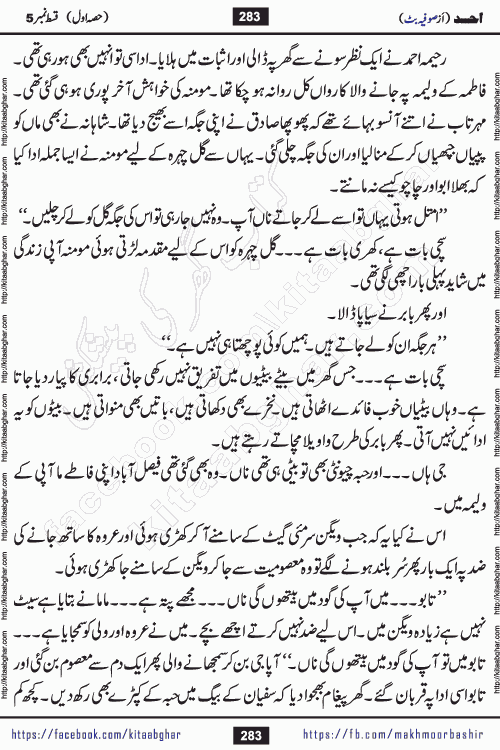 احسد (از صوفیہ بٹ) 283 (حصہ اول) قسط نمبر 5
رحیمہ احمد نے ایک نظر سونے سے گھر پہ ڈالی اور اثبات میں ہلایا۔ اداسی تو انہیں بھی ہو رہی تھی۔
فاطمہ کے ولیمہ پہ جانے والا کارواں کل روانہ ہو چکا تھا۔ مومنہ کی خواہش آخر پوری ہو ہی گئی تھی۔
مہرتاب نے اتنے آنسو بہائے تھے کہ پھوپھا صادق نے اپنی جگہ اسے بھیج دیا تھا۔ شاہانہ نے بھی ماں کو
پپیاں جھپیاں کر کے منا لیا اور ان کی جگہ چلی گئی۔ یہاں سے گل چہرہ کے لیے مومنہ نے ایسا جملہ ادا کیا
کہ بھلا ابو اور چاچو کیسے نہ مانتے۔
’’امتل ہوتی یہاں تو اسے لے کر جاتے ناں آپ۔ وہ نہیں جا رہی تو اس کی جگہ گل کو لے کر چلیں۔‘‘
سچی بات ہے، کھری بات ہے۔۔۔ گل چہرہ کو اس کے لیے مقدمہ لڑتی ہوئی مومنہ آپی زندگی
میں شاید پہلی بار اچھی لگی تھی۔
اور پھر بابر نے سیاپا ڈالا۔
’’ہر جگہ ان کو لے جاتے ہیں۔ ہمیں کوئی پوچھتا ہی نہیں ہے۔‘‘
سچی بات ہے۔۔۔ جس گھر میں بیٹے بیٹیوں میں تفریق نہیں رکھی جاتی، برابری کا پیار دیا جاتا
ہے۔ وہاں بیٹیاں خوب فائدے اٹھاتی ہیں۔ نخرے بھی دکھاتی ہیں، باتیں بھی منواتی ہیں۔ بیٹوں کو یہ
ادائیں نہیں آتی۔ پھر بابر کی طرح واویلا مچاتے رہتے ہیں۔
جی ہاں۔۔۔ اور حبہ چیونٹی بھی تو بیٹی ہی تھی ناں۔ وہ بھی گئی تھی فیصل آباد اپنی فاطے ما آپی کے
ولیمہ میں۔
اس نے کیا یہ کہ جب ویگن سرمئی گیٹ کے سامنے آ کر کھڑی ہوئی اور عروہ کا ساتھ جانے کی
ضد پہ ایک بار پھر سُر بلند ہونے لگے تو وہ معصومیت سے جا کر ویگن کے سامنے جا کھڑی ہوئی۔
’’تابو۔۔۔ میں آپ کی گود میں بیٹھوں گی ناں۔۔۔ مجھے پتہ ہے۔۔۔ ماما نے بتایا ہے سیٹ
نہیں ہے زیادہ ویگن میں۔ اس لیے ضد نہیں کرتے اچھے بچے۔ میں نے عروہ اور ولی کو سمجایا ہے۔۔۔
تابو میں تو آپ کی گود میں بیٹھوں گی ناں۔‘‘ آپا جی بن کر سمجھانے والی پھر ایک دم سے معصوم بن گئی اور
تابو اسی ادا پہ قربان گئے۔ گھر پیغام بھجوا دیا کہ سفیان کے بیگ میں حبہ کے کپڑے بھی رکھ دیں۔ کچھ کم
https://facebook.com/kitaabghar 283 https://fb.com/makhmoorbashir
http://kitaabghar.com